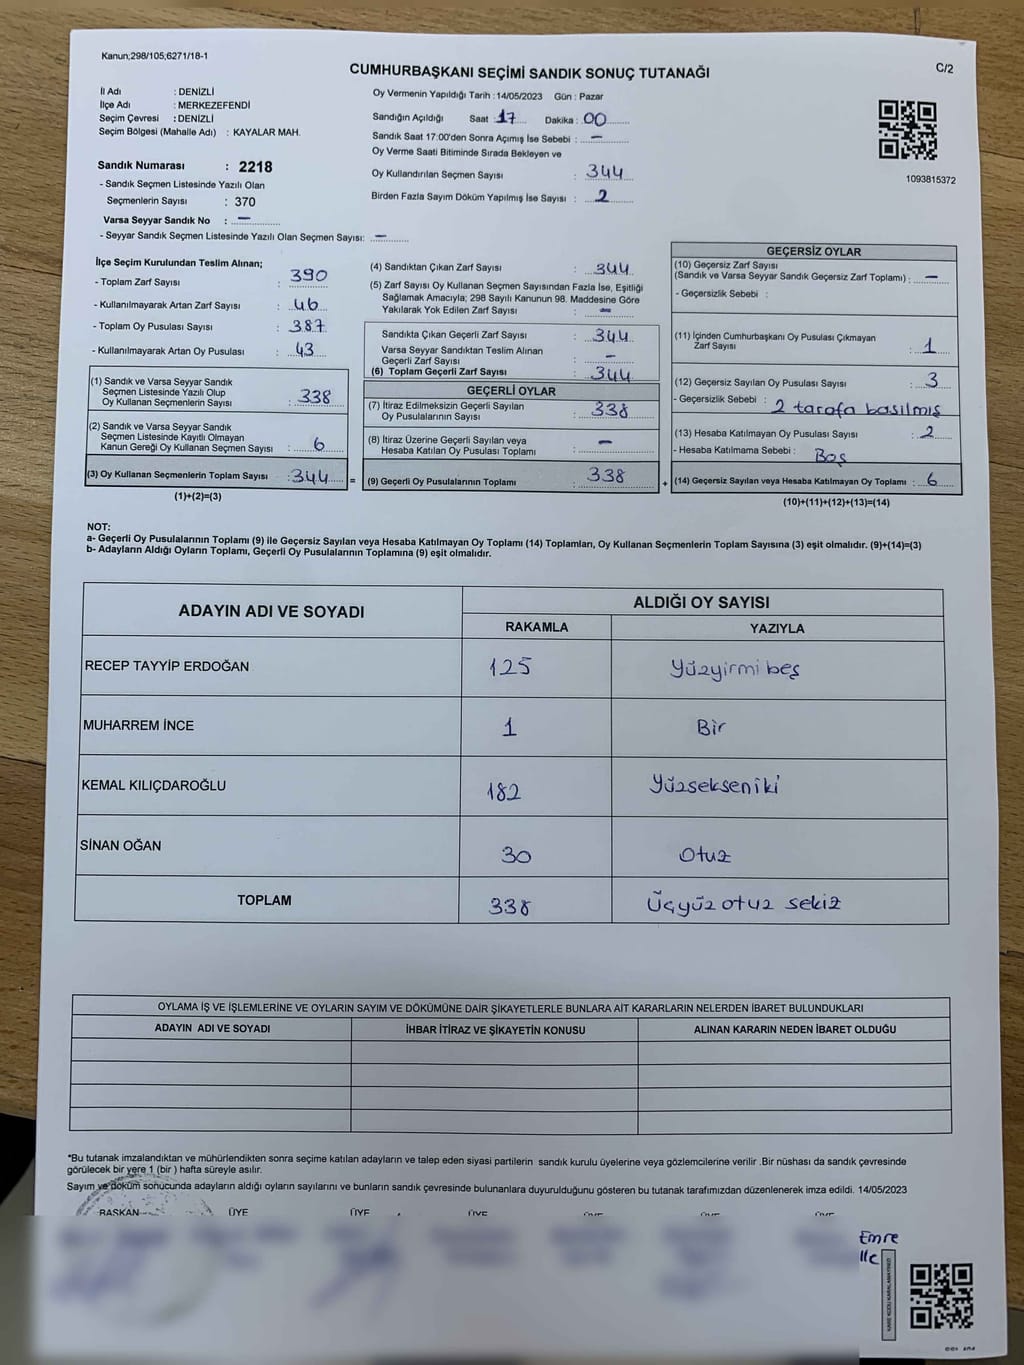 Kanun;298/105;6271/18-1
CUMHURBAŞKANI SEÇİMİ SANDIK SONUÇ TUTANAĞI
C/2
İl Adı : DENİZLİ
İlçe Adı : MERKEZEFENDİ
Seçim Çevresi : DENİZLİ
Seçim Bölgesi (Mahalle Adı) : KAYALAR MAH.
Sandık Numarası : 2218
- Sandık Seçmen Listesinde Yazılı Olan
Seçmenlerin Sayısı : 370
Varsa Seyyar Sandık No : –
- Seyyar Sandık Seçmen Listesinde Yazılı Olan Seçmen Sayısı: –
Oy Vermenin Yapıldığı Tarih : 14/05/2023 Gün : Pazar
Sandığın Açıldığı Saat : 17 Dakika : 00
Sandık Saat 17:00'den Sonra Açımış İse Sebebi : –
Oy Verme Saati Bitiminde Sırada Bekleyen ve
Oy Kullandırılan Seçmen Sayısı : 344
Birden Fazla Sayım Döküm Yapılmış İse Sayısı : 2
1093815372
İlçe Seçim Kurulundan Teslim Alınan;
- Toplam Zarf Sayısı : 390
- Kullanılmayarak Artan Zarf Sayısı : 46
- Toplam Oy Pusulası Sayısı : 387
- Kullanılmayarak Artan Oy Pusulası : 43
(1) Sandık ve Varsa Seyyar Sandık
Seçmen Listesinde Yazılı Olup
Oy Kullanan Seçmenlerin Sayısı : 338
(2) Sandık ve Varsa Seyyar Sandık
Seçmen Listesinde Kayıtlı Olmayan
Kanun Gereği Oy Kullanan Seçmen Sayısı : 6
(3) Oy Kullanan Seçmenlerin Toplam Sayısı : 344 =
(1)+(2)=(3)
(4) Sandıktan Çıkan Zarf Sayısı : 344
(5) Zarf Sayısı Oy Kullanan Seçmen Sayısından Fazla İse, Eşitliği
Sağlamak Amacıyla; 298 Sayılı Kanunun 98. Maddesine Göre
Yakılarak Yok Edilen Zarf Sayısı : –
Sandıkta Çıkan Geçerli Zarf Sayısı : 344
Varsa Seyyar Sandıktan Teslim Alınan
Geçerli Zarf Sayısı : –
(6) Toplam Geçerli Zarf Sayısı : 344
GEÇERLİ OYLAR
(7) İtiraz Edilmeksizin Geçerli Sayılan
Oy Pusulalarının Sayısı : 338
(8) İtiraz Üzerine Geçerli Sayılan veya
Hesaba Katılan Oy Pusulası Toplamı : –
(9) Geçerli Oy Pusulalarının Toplamı : 338 +
GEÇERSİZ OYLAR
(10) Geçersiz Zarf Sayısı
(Sandık ve Varsa Seyyar Sandık Geçersiz Zarf Toplamı) : –
- Geçersizlik Sebebi :
(11) İçinden Cumhurbaşkanı Oy Pusulası Çıkmayan
Zarf Sayısı : 1
(12) Geçersiz Sayılan Oy Pusulası Sayısı : 3
- Geçersizlik Sebebi : 2 tarafa basılmış
(13) Hesaba Katılmayan Oy Pusulası Sayısı : 2
- Hesaba Katılmama Sebebi : Boş
(14) Geçersiz Sayılan veya Hesaba Katılmayan Oy Toplamı : 6
(10)+(11)+(12)+(13)=(14)
NOT:
a- Geçerli Oy Pusulalarının Toplamı (9) ile Geçersiz Sayılan veya Hesaba Katılmayan Oy Toplamı (14) Toplamları, Oy Kullanan Seçmenlerin Toplam Sayısına (3) eşit olmalıdır. (9)+(14)=(3)
b- Adayların Aldığı Oyların Toplamı, Geçerli Oy Pusulalarının Toplamına (9) eşit olmalıdır.
ADAYIN ADI VE SOYADI
ALDIĞI OY SAYISI
RAKAMLA YAZIYLA
RECEP TAYYİP ERDOĞAN 125 Yüzyirmi beş
MUHARREM İNCE 1 Bir
KEMAL KILIÇDAROĞLU 182 Yüzsekseniki
SİNAN OĞAN 30 Otuz
TOPLAM 338 Üçyüz otuz sekiz
OYLAMA İŞ VE İŞLEMLERİNE VE OYLARIN SAYIM VE DÖKÜMÜNE DAİR ŞİKAYETLERLE BUNLARA AİT KARARLARIN NELERDEN İBARET BULUNDUKLARI
ADAYIN ADI VE SOYADI İHBAR İTİRAZ VE ŞİKAYETİN KONUSU ALINAN KARARIN NEDEN İBARET OLDUĞU
*Bu tutanak imzalandıktan ve mühürlendikten sonra seçime katılan adayların ve talep eden siyasi partilerin sandık kurulu üyelerine veya gözlemcilerine verilir .Bir nüshası da sandık çevresinde
görülecek bir yere 1 (bir ) hafta süreyle asılır.
Sayım ve döküm sonucunda adayların aldığı oyların sayılarını ve bunların sandık çevresinde bulunanlara duyurulduğunu gösteren bu tutanak tarafımızdan düzenlenerek imza edildi. 14/05/2023
BAŞKAN ÜYE ÜYE ÜYE ÜYE ÜYE ÜYE
Emre
KARE KODU KARALAMAYINIZ!